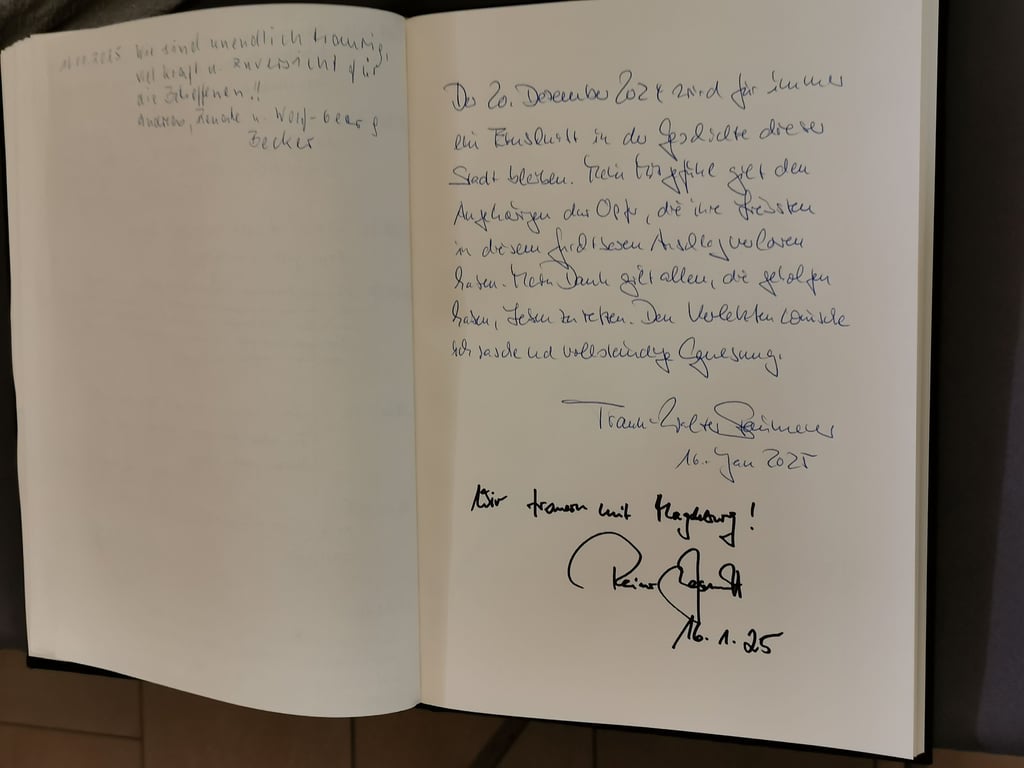 Wir sind unendlich traurig,
viel Kraft u. Zuversicht für
die Betroffenen!!
Andreas, Renate u. Wolf-Georg
Becker
Der 20. Dezember 2024 wird für immer
ein Einschnitt in der Geschichte dieser
Stadt bleiben. Mein Mitgefühl gilt den
Angehörigen der Opfer, die ihre Liebsten
in diesem Anschlag verloren
haben. Mein Dank gilt allen, die geholfen
haben, Leben zu retten. Den Verletzten wünsche
ich rasche und vollständige Genesung.
Frank-Walter Steinmeier
16. Jan 2025
Wir trauern mit Magdeburg!
Reiner Haseloff
16.1.25